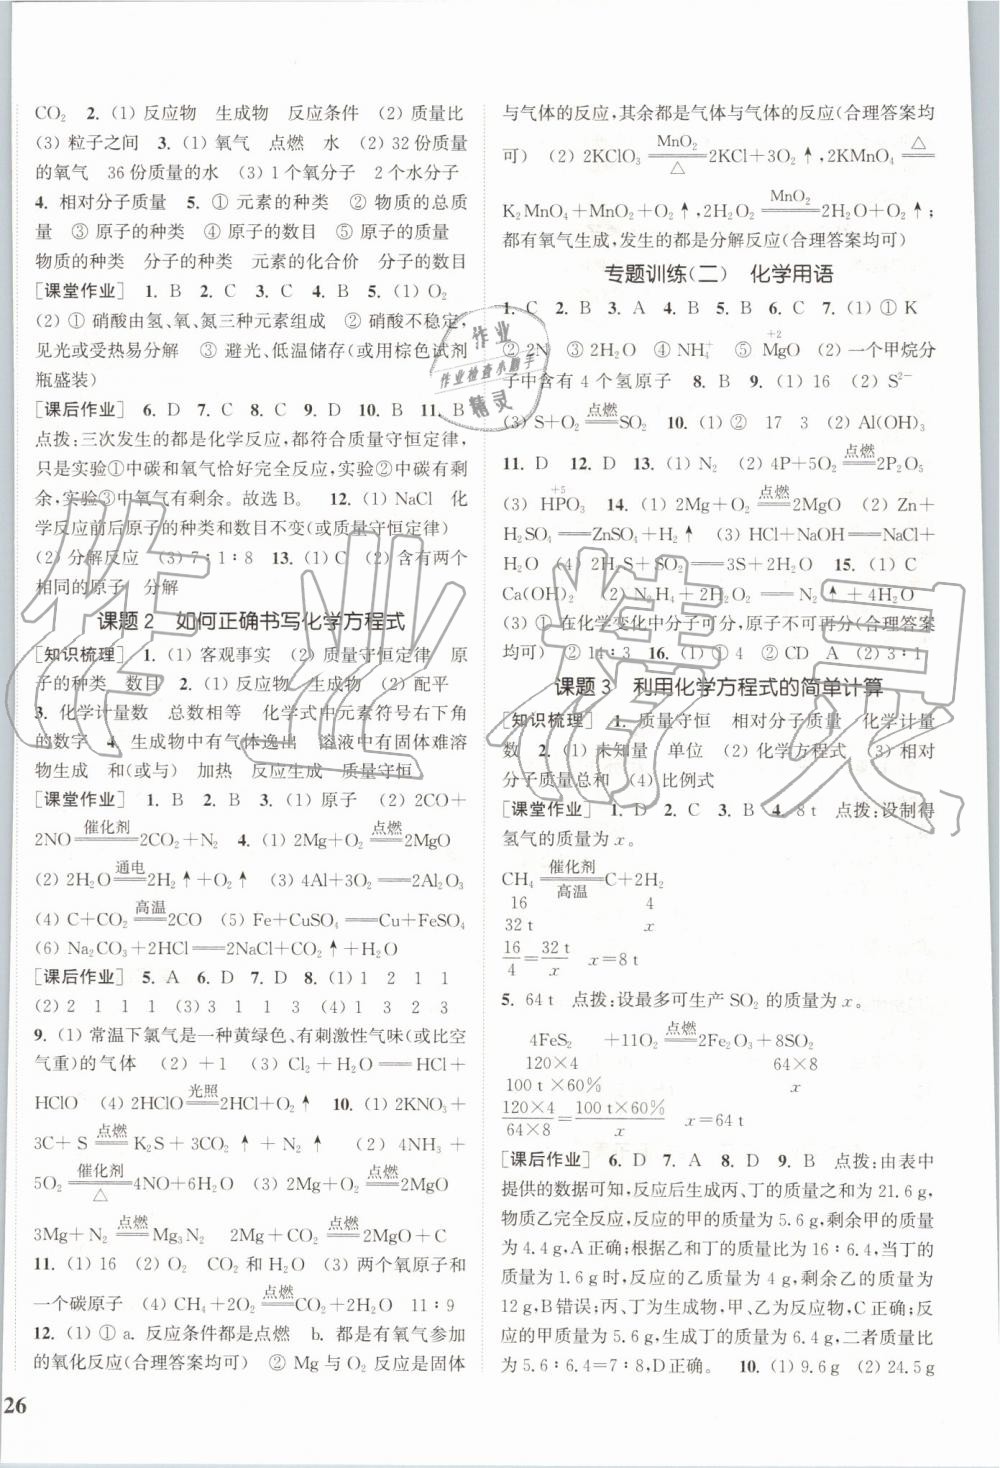 CO₂ 2. (1) 反应物 生成物 反应条件 (2) 质量比
(3) 粒子之间 3. (1) 氧气 点燃 水 (2) 32份质量
的氧气 36份质量的水 (3) 1个氧分子 2个水分子
4. 相对分子质量 5. ① 元素的种类 ② 物质的总质
量 ③ 原子的种类 ④ 原子的数目 ⑤ 原子的质量
物质的种类 分子的种类 元素的化合价 分子的数目
[课堂作业] 1. B 2. C 3. C 4. B 5. (1) O₂
(2) ① 硝酸由氢、氧、氮三种元素组成 ② 硝酸不稳定,
见光或受热易分解 ③ 避光、低温储存(或用棕色试剂
瓶盛装)
[课后作业] 6. D 7. C 8. C 9. D 10. B 11. B
点拨:三次发生的都是化学反应,都符合质量守恒定律,
只是实验①中碳和氧气恰好完全反应,实验②中碳有剩
余,实验③中氧气有剩余。故选B。 12. (1) NaCl 化
学反应前后原子的种类和数目不变(或质量守恒定律)
(2) 分解反应 (3) 7∶1∶8 13. (1) C (2) 含有两个
相同的原子 分解
课题2 如何正确书写化学方程式
[知识梳理] 1. (1) 客观事实 (2) 质量守恒定律 原
子的种类 数目 2. (1) 反应物 生成物 (2) 配平
3. 化学计量数 总数相等 化学式中元素符号右下角
的数字 4. 生成物中有气体逸出 溶液中有固体难溶
物生成 和(或与) 加热 反应生成 质量守恒
[课堂作业] 1. B 2. B 3. (1) 原子 (2) 2CO+
2NO 催化剂═ 2CO₂+N₂ 4. (1) 2Mg+O₂ 点燃═ 2MgO
(2) 2H₂O 通电═ 2H₂↑+O₂↑ (3) 4Al+3O₂ ═ 2Al₂O₃
(4) C+CO₂ 高温═ 2CO (5) Fe+CuSO₄ ═ Cu+FeSO₄
(6) Na₂CO₃+2HCl ═ 2NaCl+CO₂↑+H₂O
[课后作业] 5. A 6. D 7. D 8. (1) 1 2 1 1
(2) 2 1 1 1 (3) 3 1 1 3 (4) 1 3 2 3
9. (1) 常温下氯气是一种黄绿色、有刺激性气味(或比空
气重)的气体 (2) +1 (3) Cl₂+H₂O ═ HCl+
HClO (4) 2HClO 光照═ 2HCl+O₂↑ 10. (1) 2KNO₃+
3C+S 点燃═ K₂S+3CO₂↑+N₂↑ (2) 4NH₃+
5O₂ 催化剂═△ 4NO+6H₂O (3) 2Mg+O₂ 点燃═ 2MgO
3Mg+N₂ 点燃═ Mg₃N₂ 2Mg+CO₂ 点燃═ 2MgO+C
11. (1) 16 (2) O₂ CO₂ 和 H₂O (3) 两个氧原子和
一个碳原子 (4) CH₄+2O₂ 点燃═ CO₂+2H₂O 11∶9
12. (1) ① a. 反应条件都是点燃 b. 都是有氧气参加
的氧化反应(合理答案均可) ② Mg 与 O₂ 反应是固体
26
与气体的反应,其余都是气体与气体的反应(合理答案均
可) (2) 2KClO₃ MnO₂═△ 2KCl+3O₂↑,2KMnO₄ △═
K₂MnO₄+MnO₂+O₂↑,2H₂O₂ MnO₂═ 2H₂O+O₂↑;
都有氧气生成,发生的都是分解反应(合理答案均可)
专题训练(二) 化学用语
1. C 2. B 3. A 4. B 5. B 6. C 7. (1) ① K
② 2N ③ 2H₂O ④ NH₄⁺ ⑤ +2MgO (2) 一个甲烷分
子中含有 4 个氢原子 8. B 9. (1) 16 (2) S²⁻
(3) S+O₂ 点燃═ SO₂ 10. (1) ② 17 3 (2) Al(OH)₃
11. D 12. D 13. (1) N₂ (2) 4P+5O₂ 点燃═ 2P₂O₅
(3) +5HPO₃ 14. (1) 2Mg+O₂ 点燃═ 2MgO (2) Zn+
H₂SO₄ ═ ZnSO₄+H₂↑ (3) HCl+NaOH ═ NaCl+
H₂O (4) 2H₂S+SO₂ ═ 3S+2H₂O 15. (1) C
Ca(OH)₂ (2) N₂H₄+2H₂O₂ ═ N₂↑+4H₂O
(3) ① 在化学变化中分子可分,原子不可再分(合理答案
均可) ② 14∶3 16. (1) ① 4 ② CD A (2) 3∶1
课题3 利用化学方程式的简单计算
[知识梳理] 1. 质量守恒 相对分子质量 化学计量
数 2. (1) 未知量 单位 (2) 化学方程式 (3) 相对
分子质量总和 (4) 比例式
[课堂作业] 1. D 2. C 3. B 4. 8 t 点拨:设制得
氢气的质量为 x。
CH₄ 催化剂═高温 C+2H₂
16 4
32 t x
16/4 = 32 t/x x=8 t
5. 64 t 点拨:设最多可生产 SO₂ 的质量为 x。
4FeS₂ +11O₂ 点燃═ 2Fe₂O₃+8SO₂
120×4 64×8
100 t×60% x
120×4/64×8 = 100 t×60%/x x=64 t
[课后作业] 6. D 7. A 8. D 9. B 点拨:由表中
提供的数据可知,反应后生成丙、丁的质量之和为 21.6 g,
物质乙完全反应,反应的甲的质量为 5.6 g,剩余甲的质量
为 4.4 g,A正确;根据乙和丁的质量比为 16∶6.4,当丁的
质量为 1.6 g 时,反应的乙质量为 4 g,剩余乙的质量为
12 g,B错误;丙、丁为生成物,甲、乙为反应物,C正确;反
应的甲质量为 5.6 g,生成丁的质量为 6.4 g,二者质量比
为 5.6∶6.4=7∶8,D正确。 10. (1) 9.6 g (2) 24.5 g
作业
作业检查小助手
精灵
作业精灵